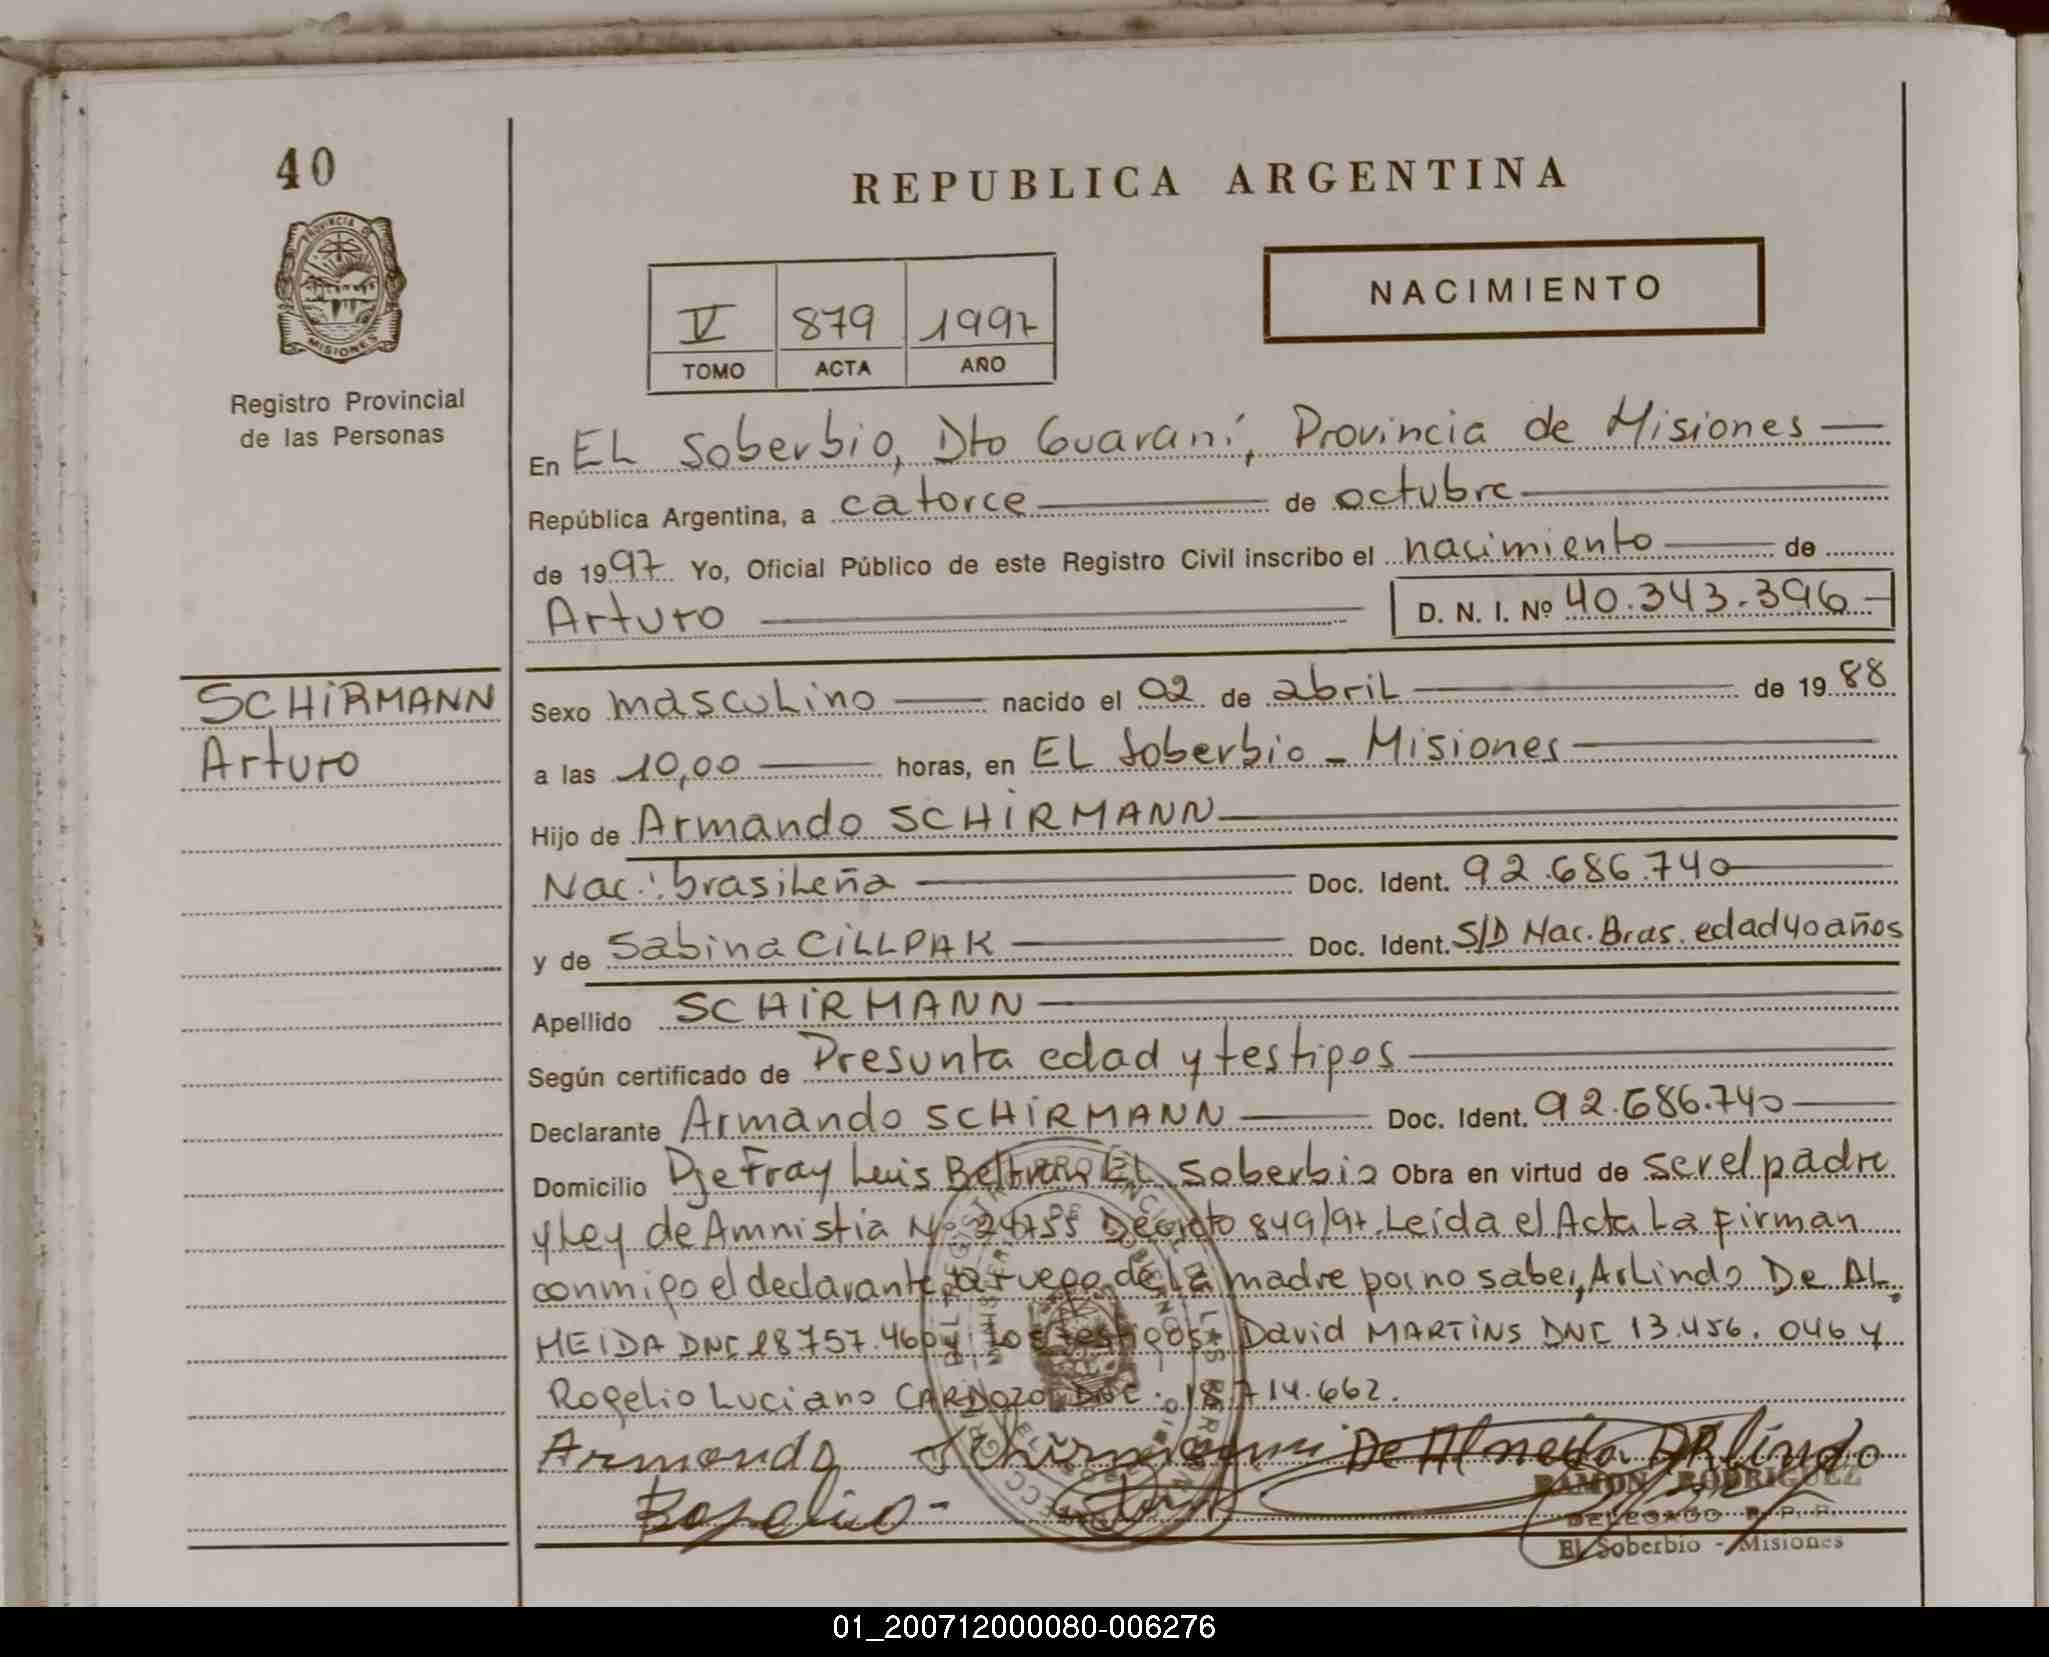 40
REPUBLICA ARGENTINA
PROVINCIA DE
MISIONES
Registro Provincial
de las Personas
NACIMIENTO
V 879 1997
TOMO ACTA AÑO
En EL Soberbio, Dto Guaraní, Provincia de Misiones
República Argentina, a catorce de octubre
de 1997 Yo, Oficial Público de este Registro Civil inscribo el nacimiento de
Arturo D. N. I. Nº 40.343.396
SCHiRMANN
Arturo
Sexo masculino nacido el 02 de abril de 19 88
a las 10,00 horas, en EL Soberbio - Misiones
Hijo de Armando SCHiRMANN
Nac.: brasileña Doc. Ident. 92.686.740
y de Sabina CiLLPAK Doc. Ident. S/D Nac. Bras. edad 40 años
Apellido SCHiRMANN
Según certificado de Presunta edad y testigos
Declarante Armando SCHiRMANN Doc. Ident. 92.686.740
Domicilio Pje Fray Luis Beltran EL Soberbio Obra en virtud de ser el padre
y Ley de Amnistia Nº 24755 Decreto 849/97. Leida el Acta La firman
conmigo el declarante, a ruego de la madre por no saber, Arlindo De AL
MEiDA DNI 18.757.460 y los testigos: David MARTiNS DNI 13.456.046 y
Rogelio Luciano CARDOZO DNI. 18.714.662.
Armando Schirmann De Almeida Arlindo
Rogelio
RAMON RODRIGUEZ
DELEGADO R. P. P.
El Soberbio - Misiones
01_200712000080-006276